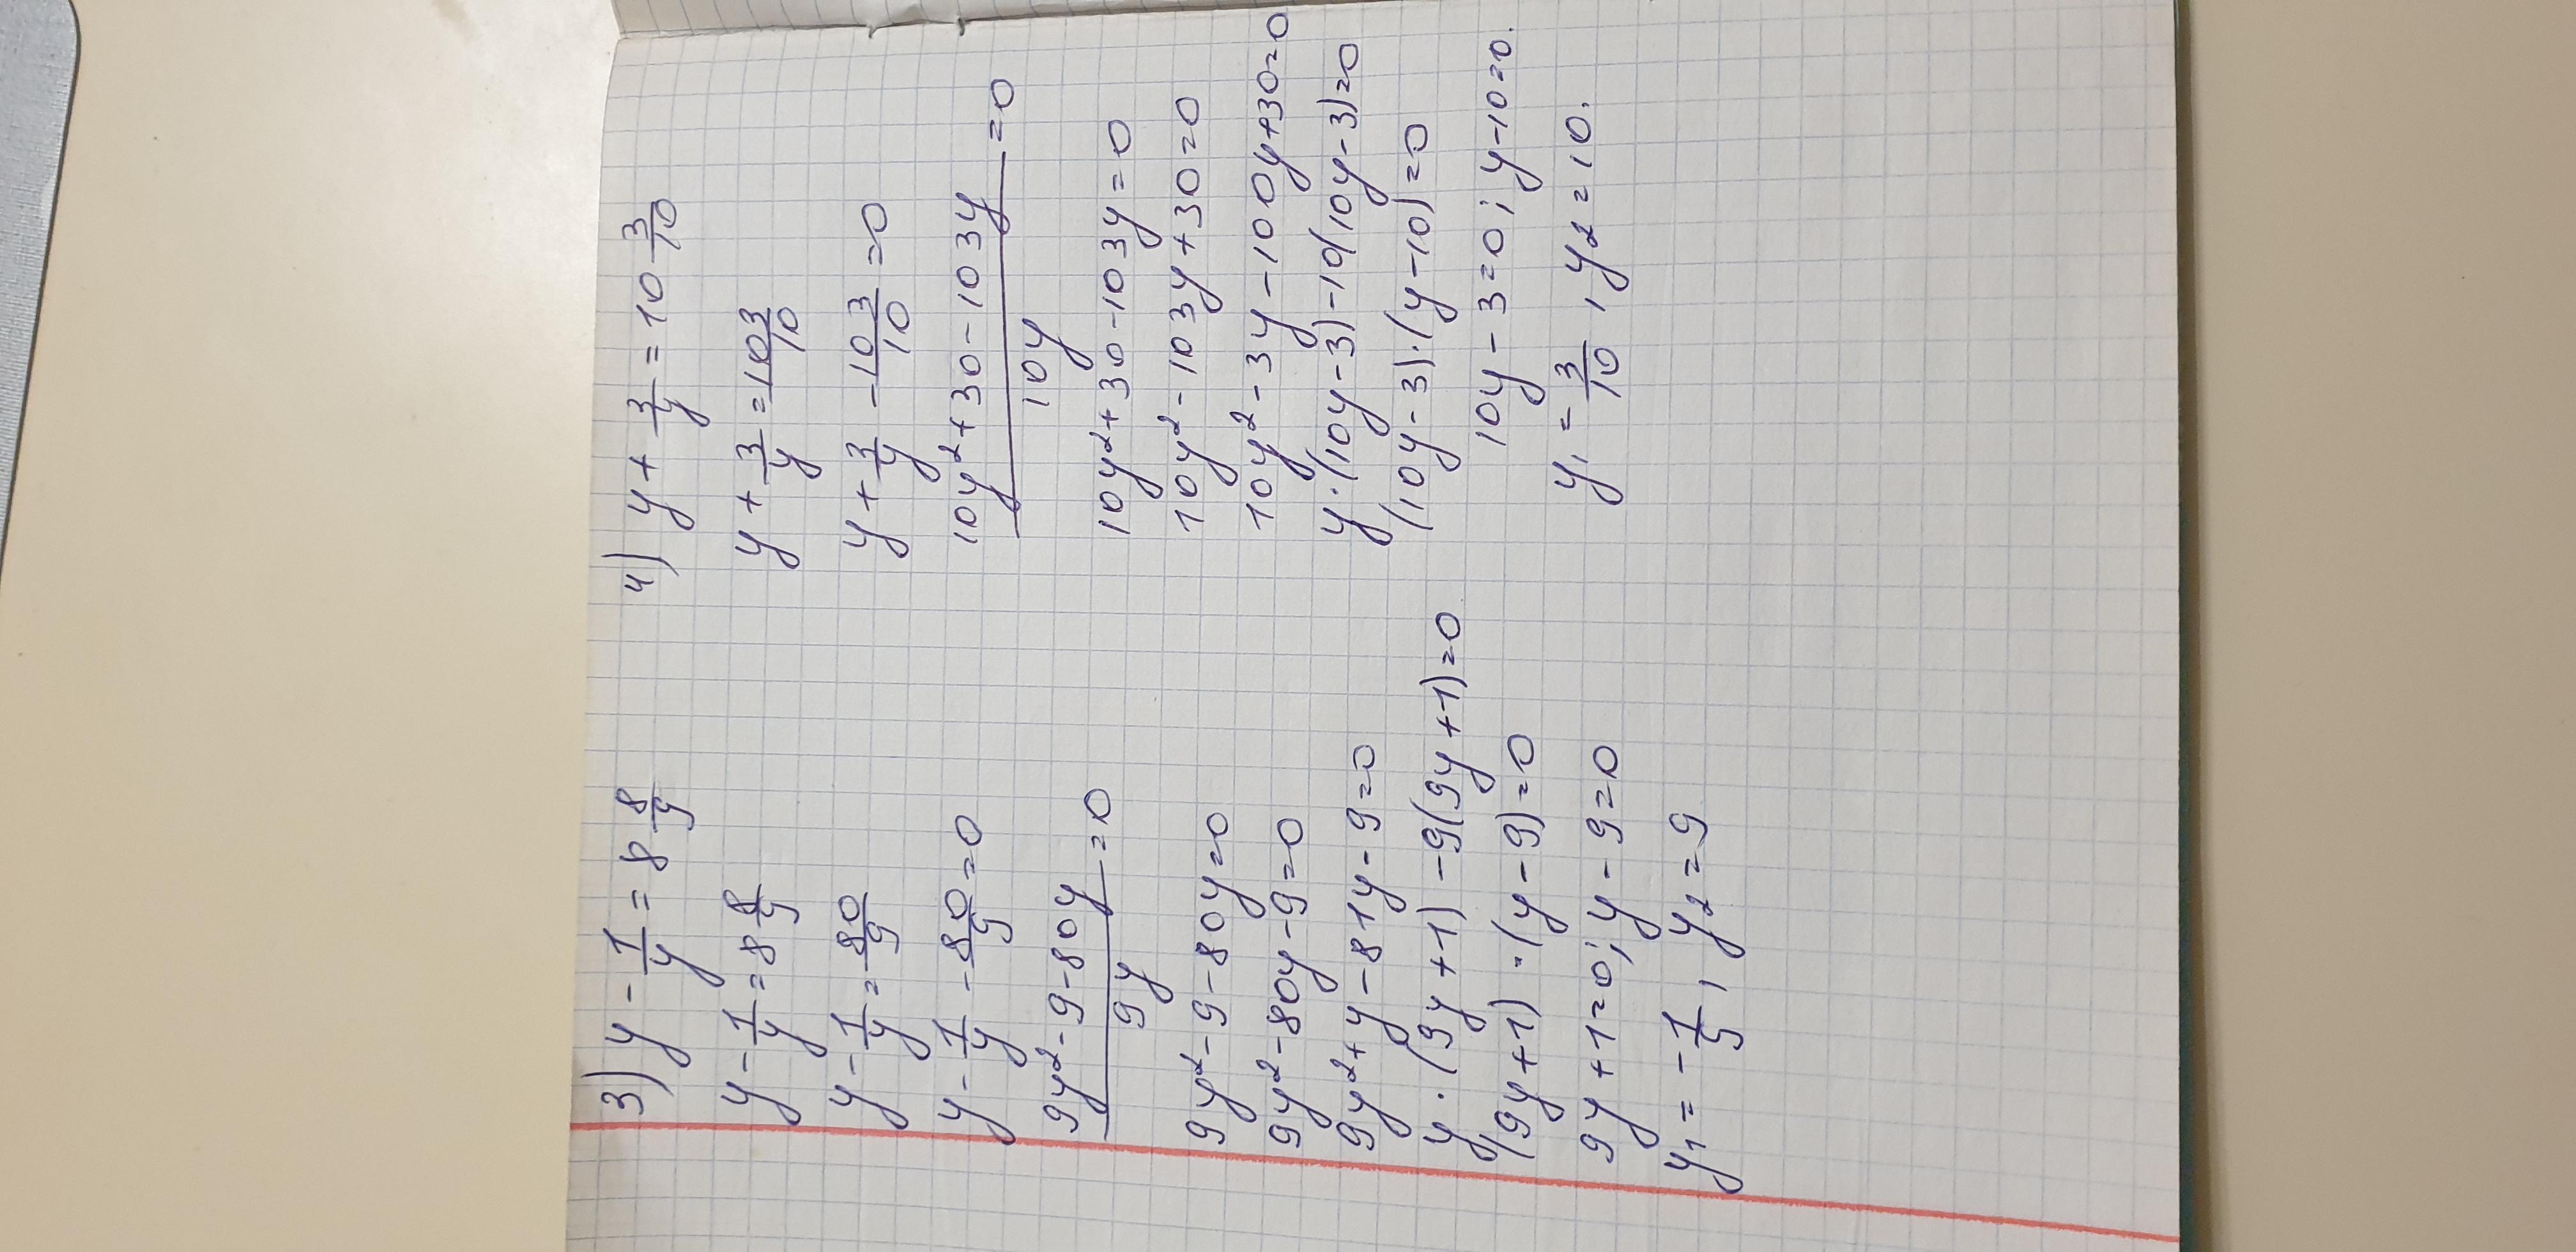 3) y - 1/y = 8 8/9
y - 1/y = 8 8/9
y - 1/y = 80/9
y - 1/y - 80/9 = 0
(9y² - 9 - 80y)/9y = 0
9y² - 9 - 80y = 0
9y² - 80y - 9 = 0
9y² + y - 81y - 9 = 0
y · (9y + 1) - 9(9y + 1) = 0
(9y + 1) · (y - 9) = 0
9y + 1 = 0; y - 9 = 0
y₁ = - 1/9, y₂ = 9
4) y + 3/y = 10 3/10
y + 3/y = 103/10
y + 3/y - 103/10 = 0
(10y² + 30 - 103y)/10y = 0
10y² + 30 - 103y = 0
10y² - 103y + 30 = 0
10y² - 3y - 100y + 30 = 0
y · (10y - 3) - 10(10y - 3) = 0
(10y - 3) · (y - 10) = 0
10y - 3 = 0; y - 10 = 0.
y₁ = 3/10, y₂ = 10.